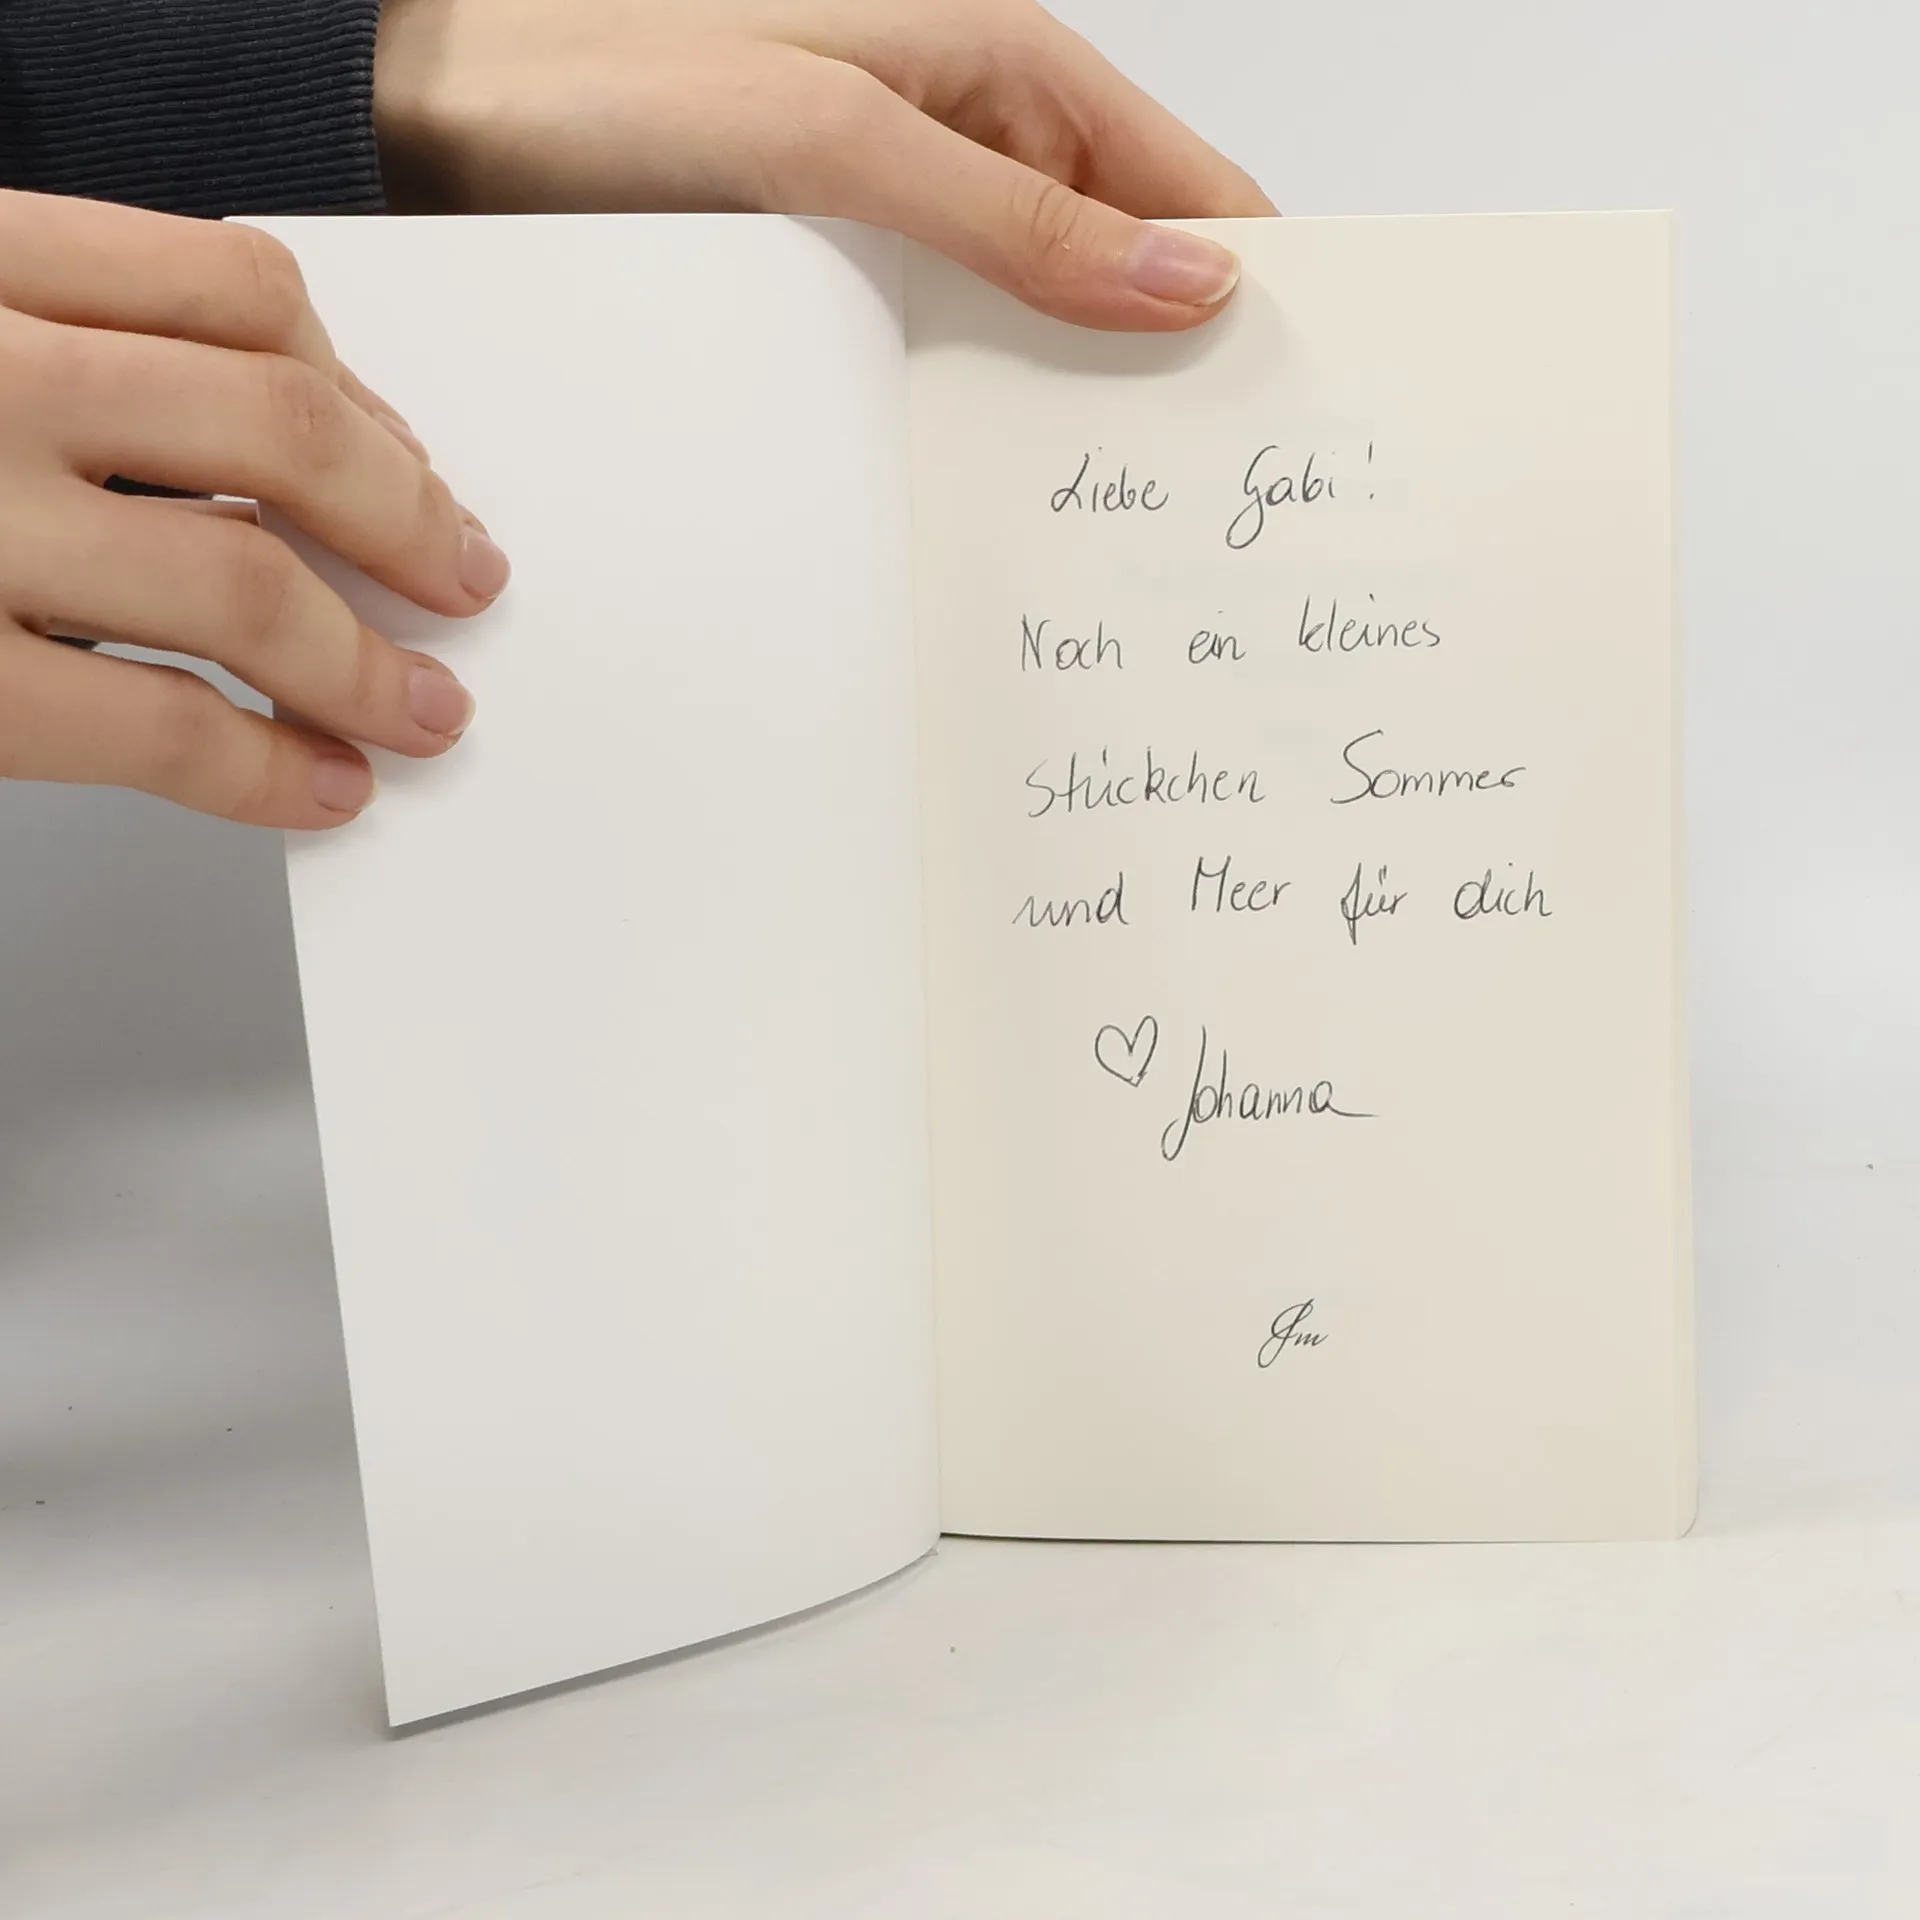 Liebe Gabi!
Noch ein kleines
Stückchen Sommer
und Meer für dich
♡ Johanna